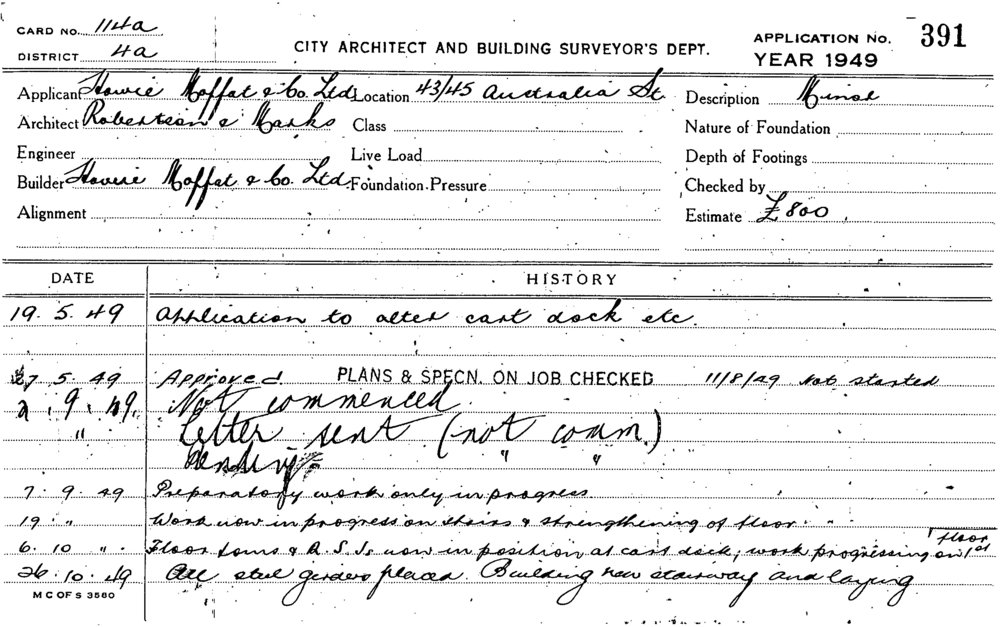 CARD NO. 114a
DISTRICT 4a
CITY ARCHITECT AND BUILDING SURVEYOR'S DEPT.
APPLICATION NO. 391
YEAR 1949
Applicant Howie Moffat & Co. Ltd. Location 43/45 Australia St. Description Minor
Architect Robertson & Marks Class Nature of Foundation
Engineer Live Load Depth of Footings
Builder Howie Moffat & Co. Ltd. Foundation Pressure Checked by
Alignment Estimate £800
DATE HISTORY
19. 5. 49 Application to alter cart dock etc.
27 5. 49 Approved. PLANS & SPECN. ON JOB CHECKED 11/8/49 Not started
2. 9. 49. Not commenced.
" Letter sent (not comm.)
" "
7. 9. 49 Preparatory work only in progress.
19. " Work now in progress on stairs & strengthening of floor.
6. 10 " Floor & R.S.Js now in position at cart dock; work progressing on 1st floor
26. 10. 49 All steel girders placed. Building new stairway and laying
M C OF S 3580